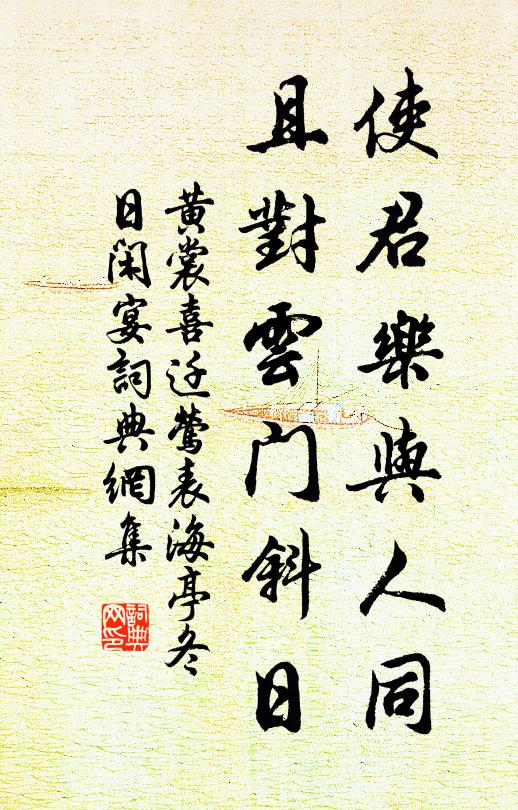 使君樂與人同
且對雲門斜日
黄裳喜迁鶯表海亭冬
日閑宴詞典網集
詞典網印